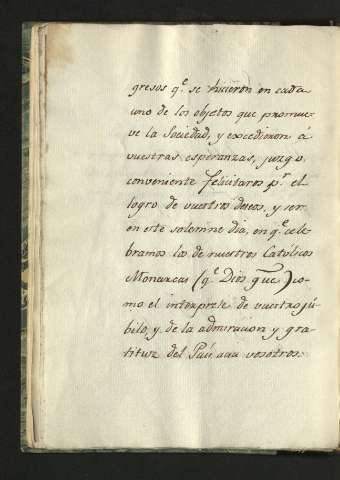 gresos q.e se hicieron en cada
uno de los objetos que promue-
ve la Sociedad, y excedieron á
vuestras esperanzas, juzgo
conveniente felicitaros p.r el
logro de vuestros deseos, y ser
en este solemne dia, en q.e cele-
bramos los de nuestros Católicos
Monarcas (q.e Dios gue) co-
mo el interprete de vuestro jú-
bilo, y de la admiracion y gra-
titud del País acia vosotros.